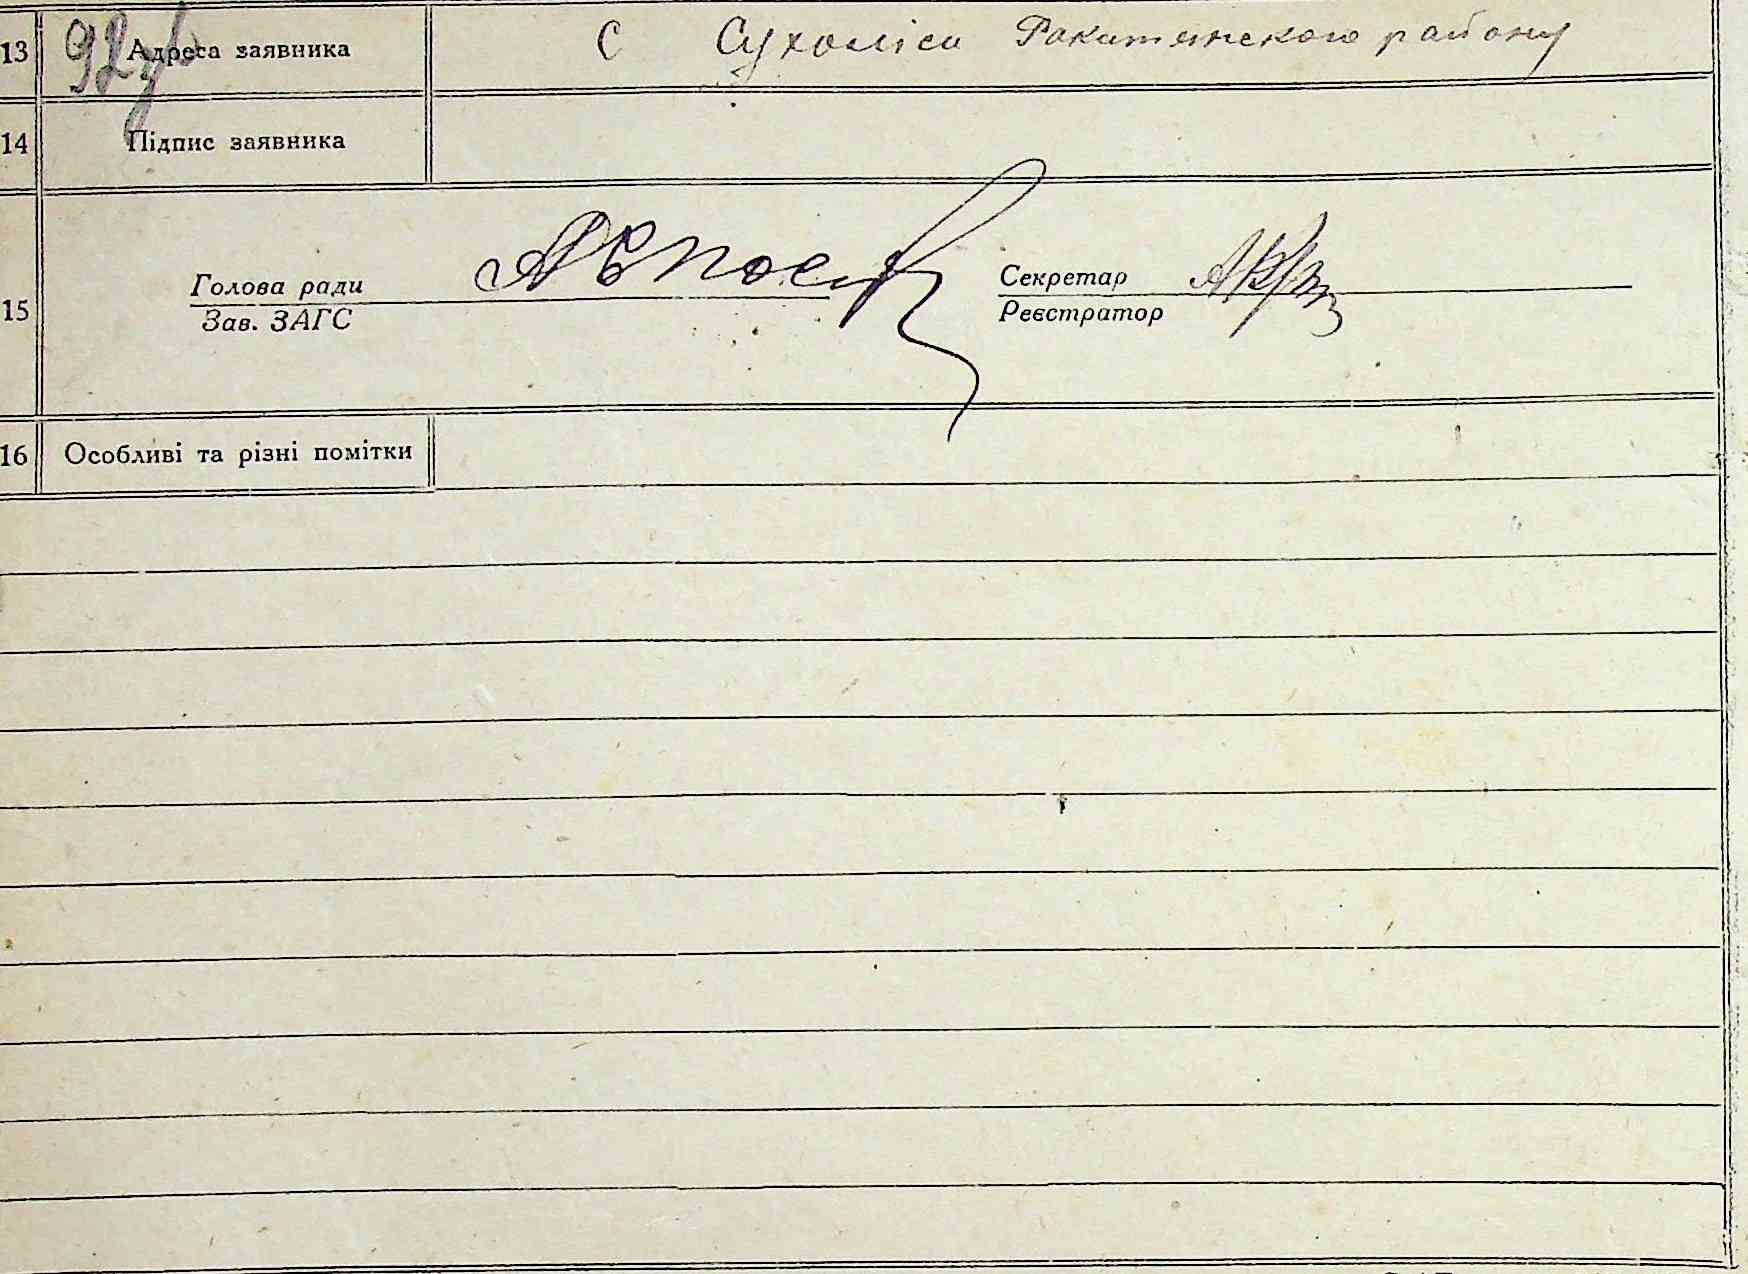 13 Адреса заявника С Сухоліси Ракитянского району
14 Підпис заявника
15 Голова ради Секретар
Зав. ЗАГС Реєстратор
16 Особливі та різні помітки